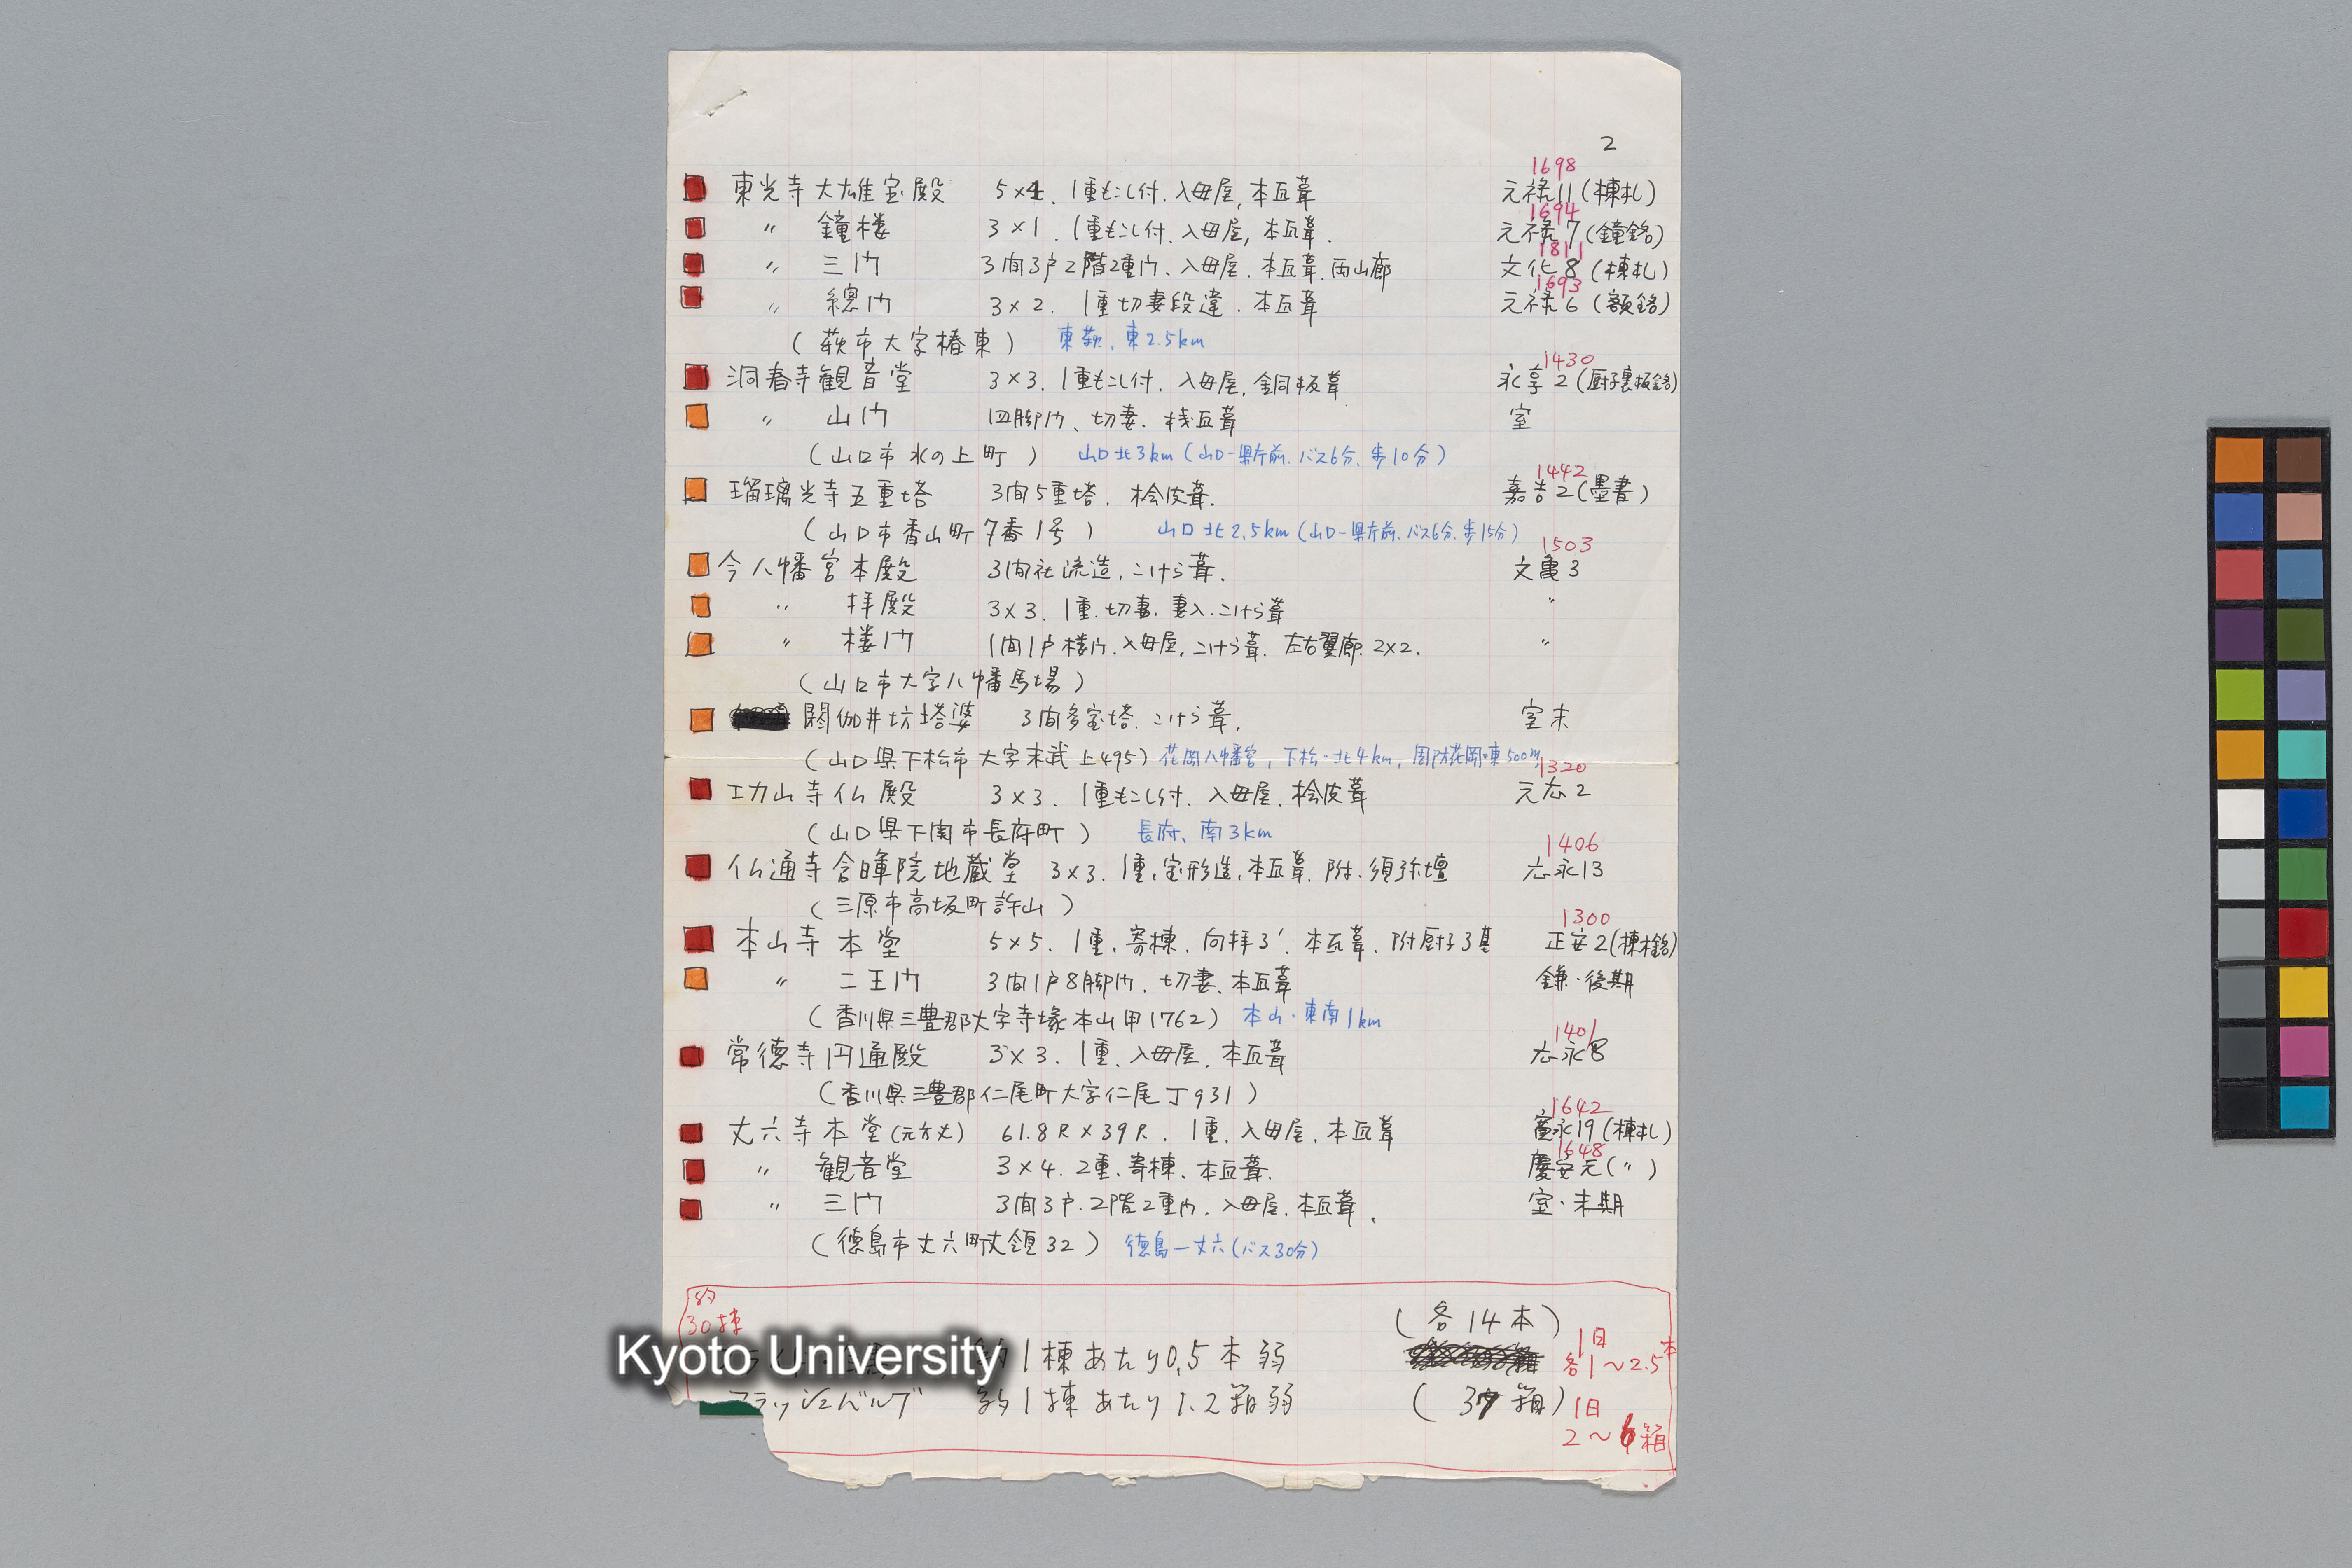 2
1698
東光寺大雄宝殿 5×4. 1重もこし付. 入母屋, 本瓦葺 元禄11(棟札)
1694
〃 鐘楼 3×1. 1重もこし付. 入母屋, 本瓦葺. 元禄7(鐘銘)
1811
〃 三門 3間3戸2階2重門、入母屋. 本瓦葺. 両山廊 文化8(棟札)
1693
〃 總門 3×2. 1重切妻段違. 本瓦葺 元禄6(額銘)
(萩市大字椿東) 東萩. 東2.5km
1430
洞春寺観音堂 3×3. 1重もこし付. 入母屋. 銅板葺 永享2(厨子裏板銘)
〃 山門 四脚門、切妻. 桟瓦葺 室
(山口市水の上町) 山口北3km(山口-県庁前. バス6分. 歩10分)
1442
瑠璃光寺五重塔 3間5重塔. 桧皮葺. 嘉吉2(墨書)
(山口市香山町7番1号) 山口北2.5km(山口-県庁前. バス6分. 歩15分)
1503
今八幡宮本殿 3間社流造, こけら葺. 文亀3
〃 拝殿 3×3. 1重. 切妻. 妻入. こけら葺 〃
〃 楼門 1間1戸楼門. 入母屋, こけら葺. 左右翼廊. 2×2. 〃
(山口市大字八幡馬場)
閼伽井坊塔婆 3間多宝塔. こけら葺. 室末
(山口県下松市大字末武上495) 花岡八幡宮, 下松・北4km, 周防花岡・東500m
1320
功山寺仏殿 3×3. 1重もこし付. 入母屋. 桧皮葺 元応2
(山口県下関市長府町) 長府、南3km
1406
仏通寺含暉院地蔵堂 3×3. 1重. 宝形造. 本瓦葺. 附. 須弥壇 応永13
(三原市高坂町許山)
1300
本山寺本堂 5×5. 1重. 寄棟. 向拝3'. 本瓦葺. 附厨子3基 正安2(棟木銘)
〃 二王門 3間1戸8脚門. 切妻. 本瓦葺 鎌・後期
(香川県三豊郡大字寺塚本山甲1762) 本山・東南1km
1401
常徳寺円通殿 3×3. 1重. 入母屋. 本瓦葺 応永8
(香川県三豊郡仁尾町大字仁尾丁931)
1642
丈六寺本堂(元方丈) 61.8尺×39尺. 1重. 入母屋. 本瓦葺 寛永19(棟札)
1648
〃 観音堂 3×4. 2重. 寄棟. 本瓦葺. 慶安元(〃)
〃 三門 3間3戸. 2階2重門. 入母屋. 本瓦葺. 室・末期
(徳島市丈六町丈領32) 徳島-丈六(バス30分)
約
30棟
(各14本)
約1棟あたり0.5本弱 1日
各1〜2.5本
フラッシュバルブ 約1棟あたり1.2箱弱 (37箱) 1日
2〜6箱
Kyoto University